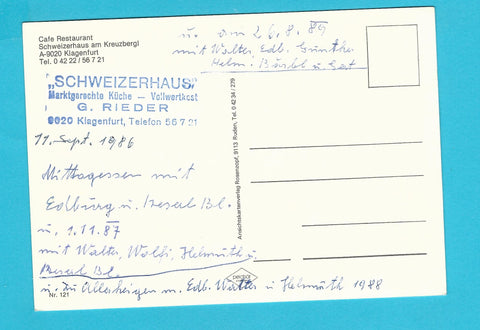 Cafe Restaurant
Schweizerhaus am Kreuzbergl
A-9020 Klagenfurt
Tel. 0 42 22 / 56 7 21
„SCHWEIZERHAUS“
Marktgerechte Küche — Vollwertkost
G. RIEDER
9020 Klagenfurt, Telefon 56 7 21
u. am 26.8.89
mit Walter Edb. Gunther
Helm: u
11. Sept. 1986
Mittagessen mit
Edburg u. Beserl Bl.
u. 1.11.87
mit Walter, Wolli, Helmuth u
Beserl Bl.
u. zu Allerheigen m. Edb. Walter u Helmuth 1988
Nr. 121
Ansichtskartenverlag Rosenzopf, 9113 Ruden, Tel. 0 42 34 / 279